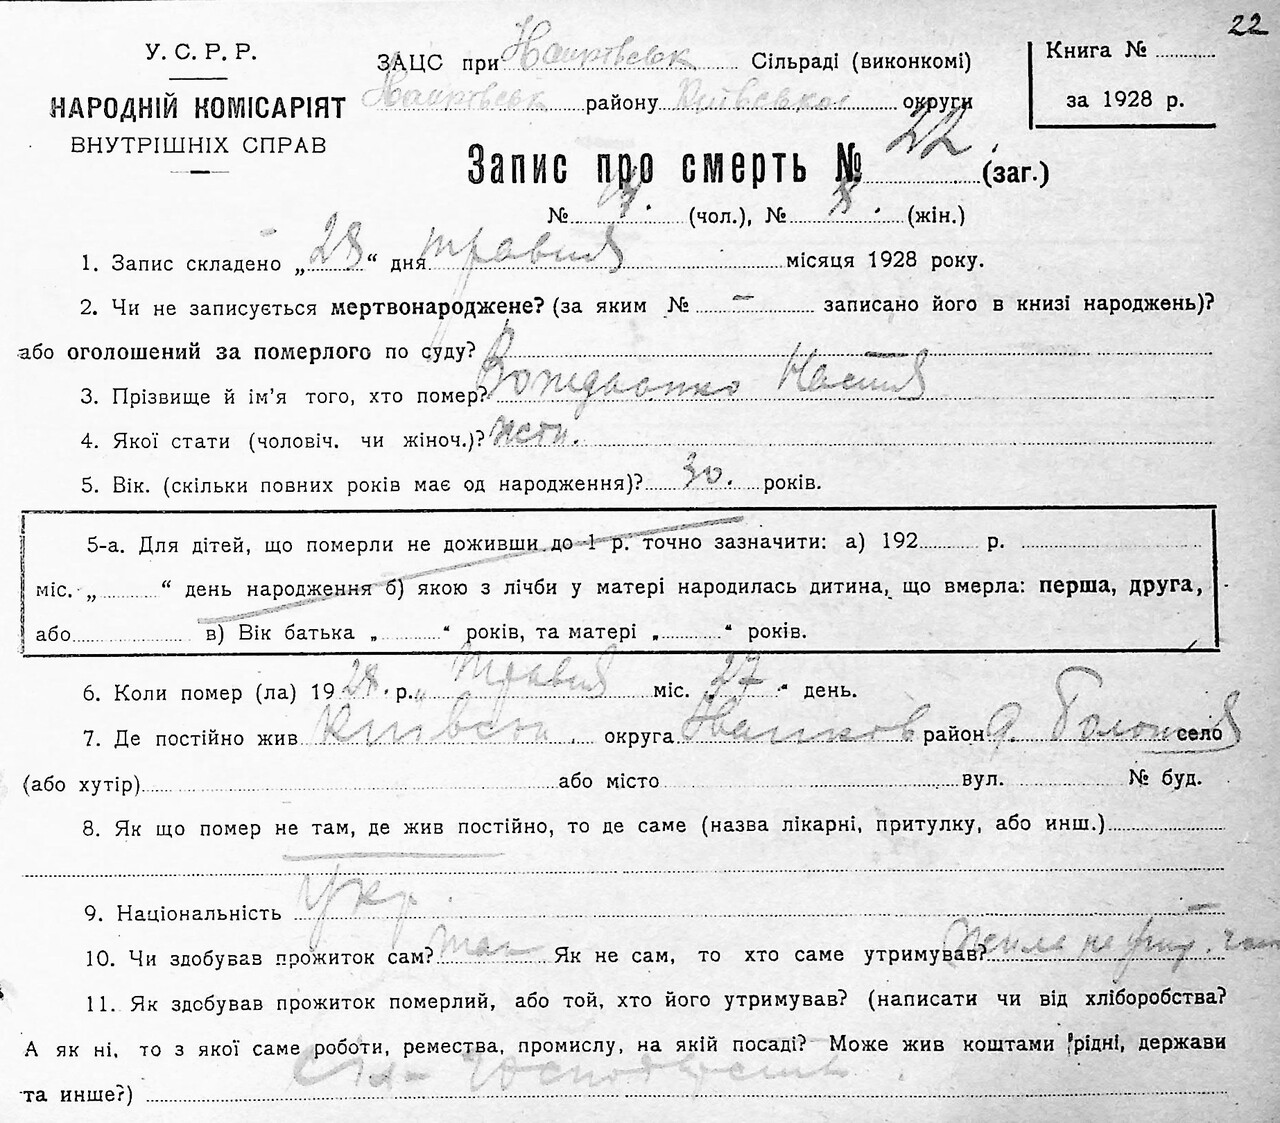 22
У. С. Р. Р.
НАРОДНІЙ КОМІСАРІЯТ
ВНУТРІШНІХ СПРАВ
ЗАЦС при Сільраді (виконкомі)
району Київської округи
Книга №
за 1928 р.
Запис про смерть № 22. (заг.)
№ (чол.), № 8. (жін.)
1. Запис складено „28“ дня травня місяця 1928 року.
2. Чи не записується мертвонароджене? (за яким № – записано його в книзі народжень)?
або оголошений за померлого по суду? —
3. Прізвище й ім'я того, хто помер? Настя
4. Якої стати (чоловіч. чи жіноч.)?
5. Вік. (скільки повних років має од народження)? 30. років.
5-а. Для дітей, що померли не доживши до 1 р. точно зазначити: а) 192 р.
міс. „ “ день народження б) якою з лічби у матері народилась дитина, що вмерла: перша, друга,
або в) Вік батька „ “ років, та матері „ “ років.
6. Коли помер (ла) 1928. р. травня міс. „27“ день.
7. Де постійно жив Київськ. округа район село
(або хутір) або місто вул. № буд.
8. Як що помер не там, де жив постійно, то де саме (назва лікарні, притулку, або инш.)
9. Національність Укр. —
10. Чи здобував прожиток сам? так Як не сам, то хто саме утримував?
11. Як здобував прожиток померлий, або той, хто його утримував? (написати чи від хліборобства?
А як ні, то з якої саме роботи, ремества, промислу, на якій посаді? Може жив коштами рідні, держави
та инше?)